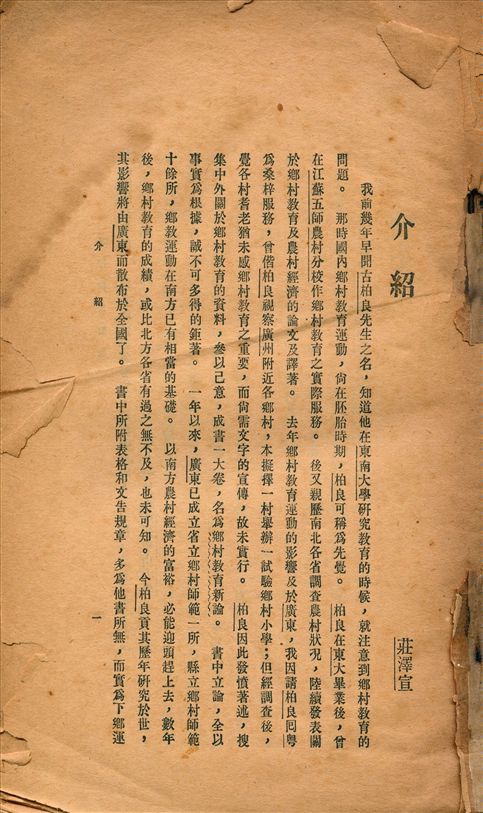 介紹
莊澤宣
我前幾年早聞古柏良先生之名，知道他在東南大學研究教育的時候，就注意到鄉村教育的
問題。　那時國內鄉村教育運動，尙在胚胎時期，柏良可稱爲先覺。　柏良在東大畢業後，曾
在江蘇五師農村分校作鄉村教育之實際服務。　後又親歷南北各省調査農村狀況，陸續發表關
於鄉村教育及農村經濟的論文及譯著。　去年鄉村教育運動的影響及於廣東，我因請柏良囘粵
爲桑梓服務，曾偕柏良視察廣州附近各鄉村，本擬擇一村舉辦一試驗鄉村小學；但經調査後，
覺各村耆老猶未感鄉村教育之重要，而尙需文字的宣傳，故未實行。　柏良因此發憤著述，搜
集中外關於鄉村教育的資料，參以己意，成書一大卷，名爲鄉村教育新論。　書中立論，全以
事實爲根據，誠不可多得的鉅著。　一年以來，廣東已成立省立鄉村師範一所，縣立鄉村師範
十餘所，鄉教運動在南方已有相當的基礎。　以南方農村經濟的富裕，必能迎頭趕上去，數年
後，鄉村教育的成績，或比北方各省有過之無不及，也未可知。　今柏良貢其歷年研究於世，
其影響將由廣東而散布於全國了。　書中所附表格和文告規章，多爲他書所無，而實爲下鄉運
介紹
一